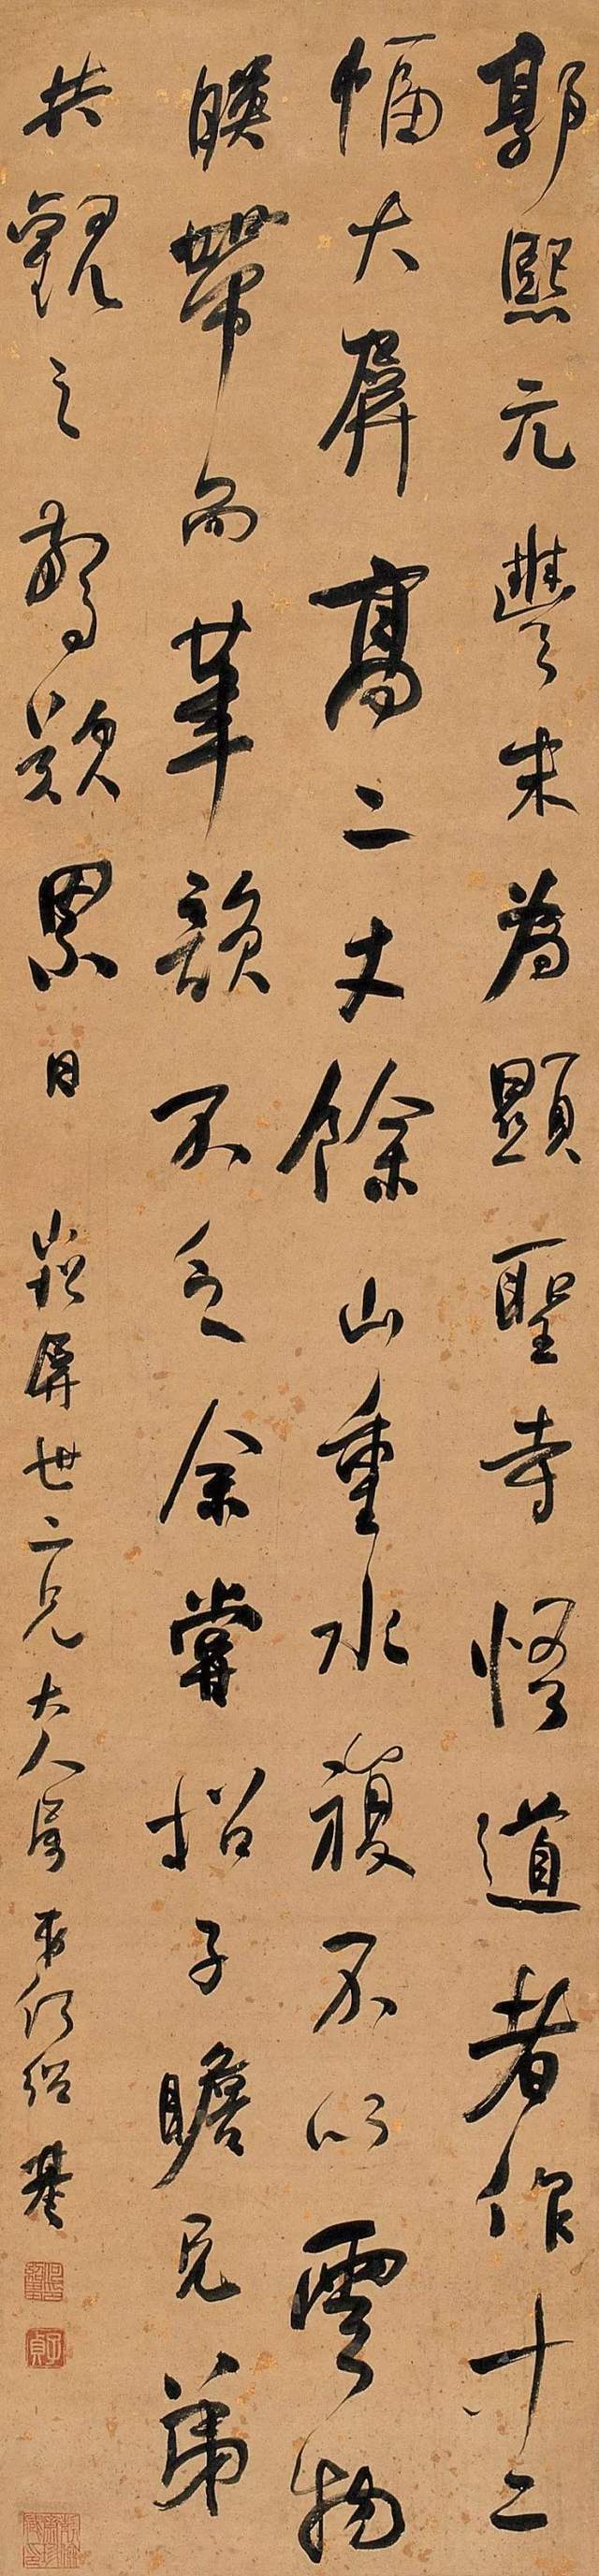 郭熙元豐末為顯聖寺悟道者作十二
幅大屏高二丈餘山重水複不以雲物
映帶而筆韻不乏余嘗招子瞻兄弟
共觀之歎息累日 崧屏世二兄大人屬 弟何紹基
子貞